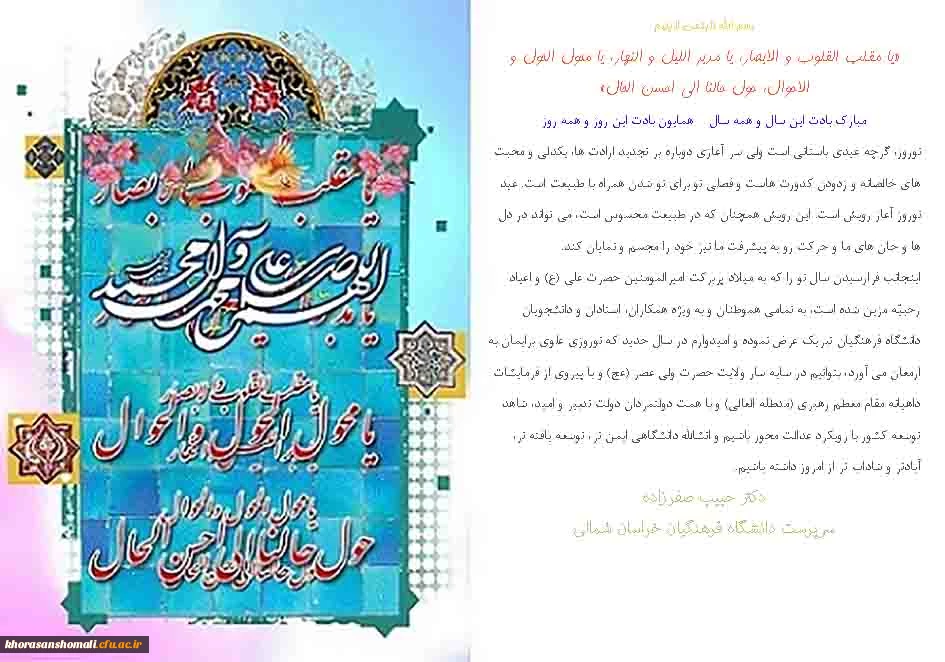 بسم الله الرحمن الرحیم
«یا مقلب القلوب و الابصار، یا مدبر اللیل و النهار، یا محول الحول و
الاحوال، حول حالنا الی احسن الحال»
مبارک بادت این سال و همه سال همایون بادت این روز و همه روز
نوروز، گرچه عیدی باستانی است ولی سر آغازی دوباره بر تجدید ارادت ها، یکدلی و محبت
های خالصانه و زدودن کدورت هاست و فصلی نو برای نو شدن همراه با طبیعت است. عید
نوروز آغاز رویش است. این رویش همچنان که در طبیعت محسوس است، می تواند در دل
ها و جان های ما و حرکت رو به پیشرفت ما نیز خود را مجسم و نمایان کند.
اینجانب فرارسیدن سال نو را که به میلاد پربرکت امیرالمومنین حضرت علی (ع) و اعیاد
رجبیّه مزین شده است، به تمامی هموطنان و به ویژه همکاران، استادان و دانشجویان
دانشگاه فرهنگیان تبریک عرض نموده و امیدوارم در سال جدید که نوروزی علوی برایمان به
ارمغان می آورد، بتوانیم در سایه سار ولایت حضرت ولی عصر (عج) و با پیروی از فرمایشات
داهیانه مقام معظم رهبری (مدظله العالی) و با همت دولتمردان دولت تدبیر و امید، شاهد
توسعه کشور با رویکرد عدالت محور باشیم و انشالله دانشگاهی ایمن تر، توسعه یافته تر،
آبادتر و شاداب تر از امروز داشته باشیم.
دکتر حبیب صفرزاده
سرپرست دانشگاه فرهنگیان خراسان شمالی
یا مقلب القلوب و الابصار
یا محول الحول و الاحوال
حول حالنا الی احسن الحال
khorasanshomali.cfu.ac.ir